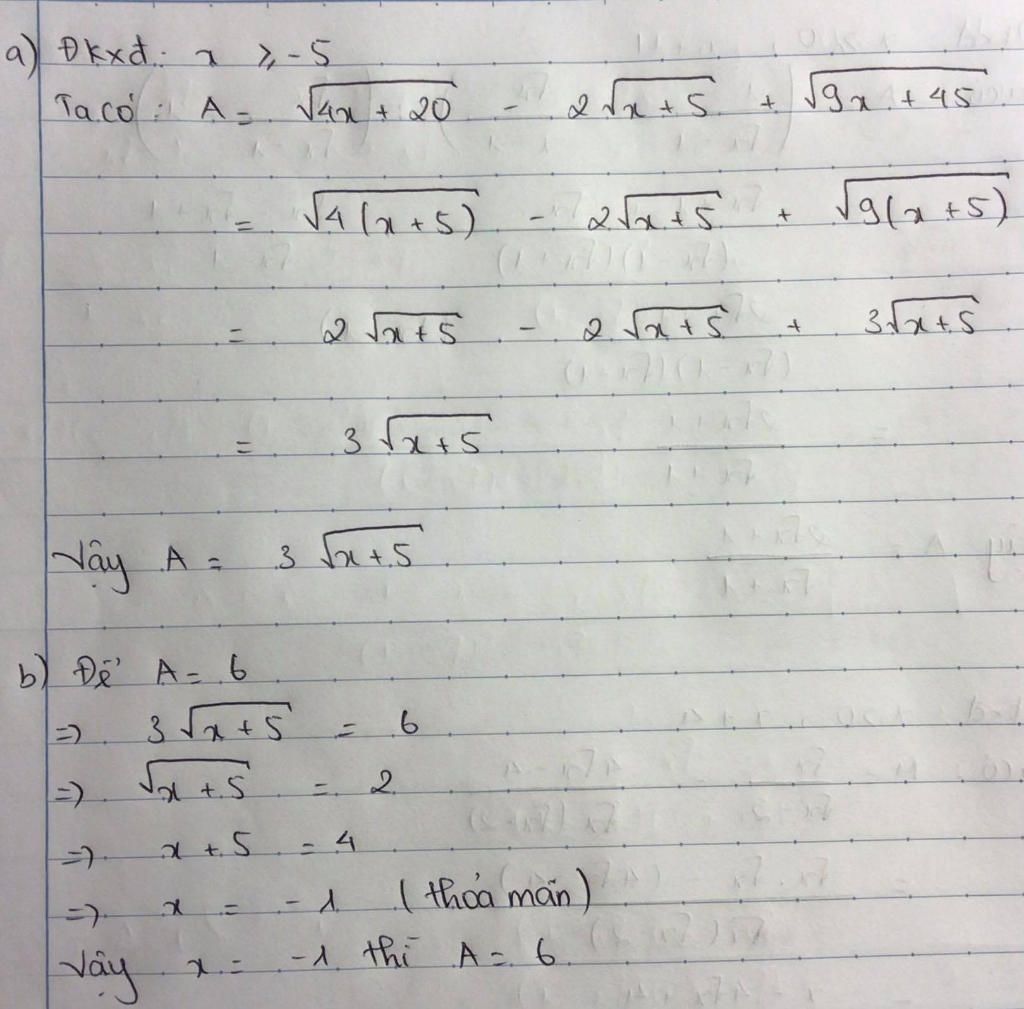 a) Đkxđ: x ⩾ -5
Ta có: A = √(4x + 20) - 2√(x + 5) + √(9x + 45)
= √(4(x + 5)) - 2√(x + 5) + √(9(x + 5))
= 2√(x + 5) - 2√(x + 5) + 3√(x + 5)
= 3√(x + 5)
Vậy A = 3√(x + 5)
b) Để A = 6
=> 3√(x + 5) = 6
=> √(x + 5) = 2
=> x + 5 = 4
=> x = -1 (thỏa mãn)
Vậy x = -1 thì A = 6